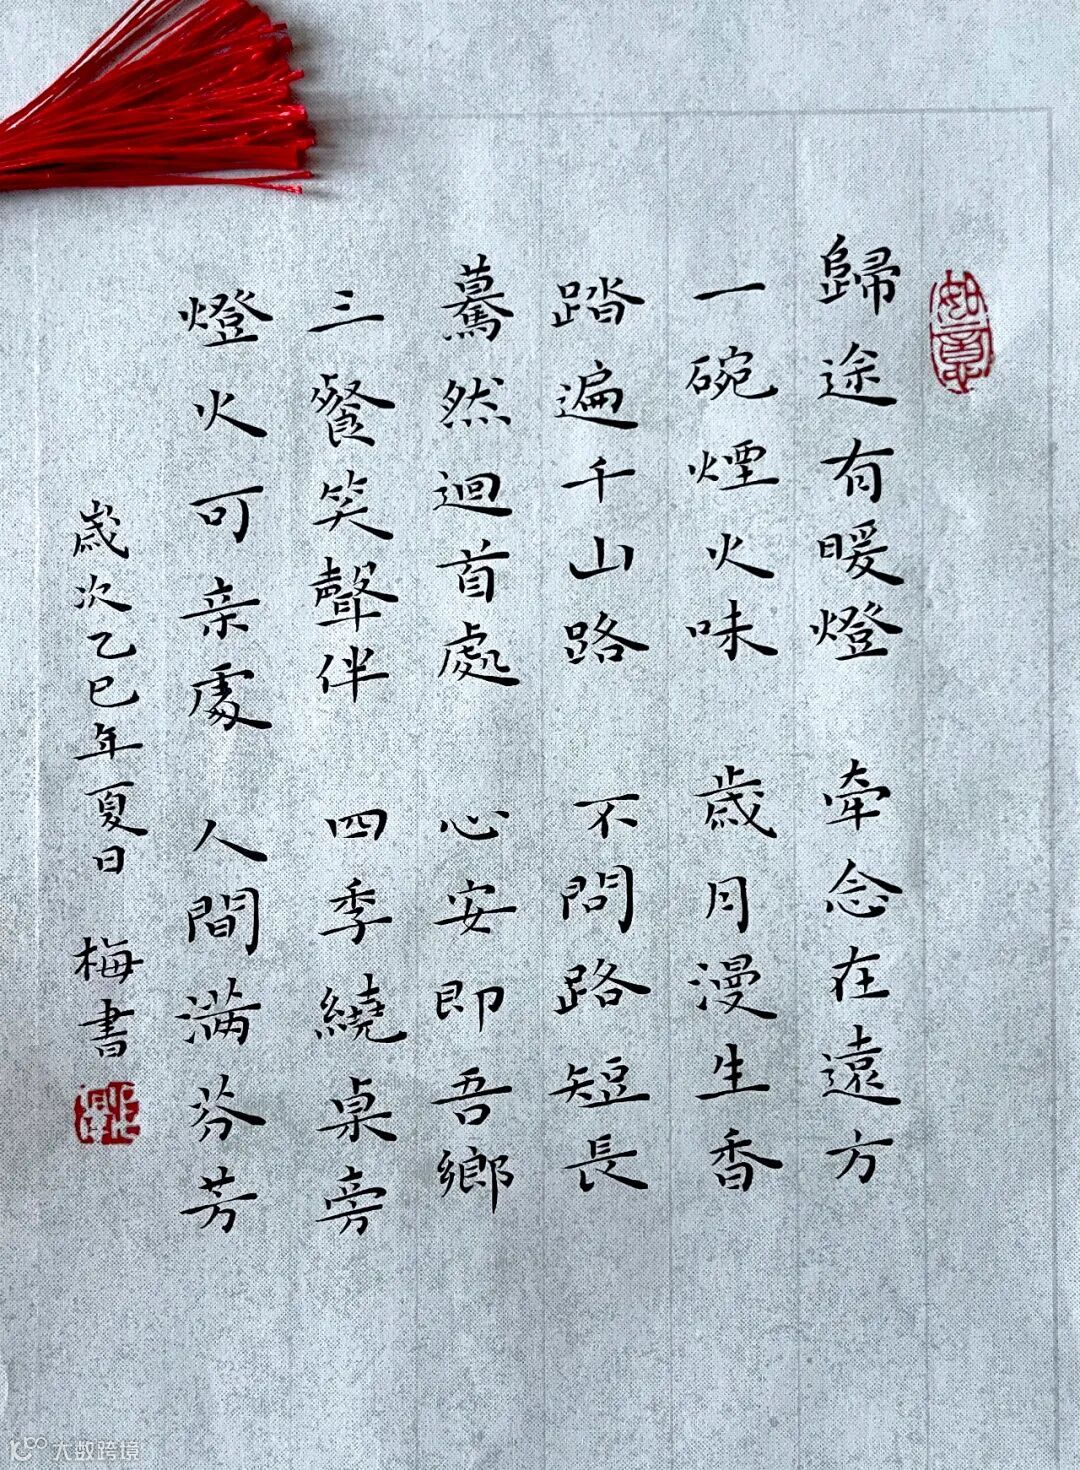 如意
歸途有暖燈 牽念在遠方
一碗煙火味 歲月漫生香
踏遍千山路 不問路短長
驀然迴首處 心安即吾鄉
三餐笑聲伴 四季繞桌旁
燈火可亲處 人間满芬芳
歲次乙巳年夏日 梅書
大数跨境